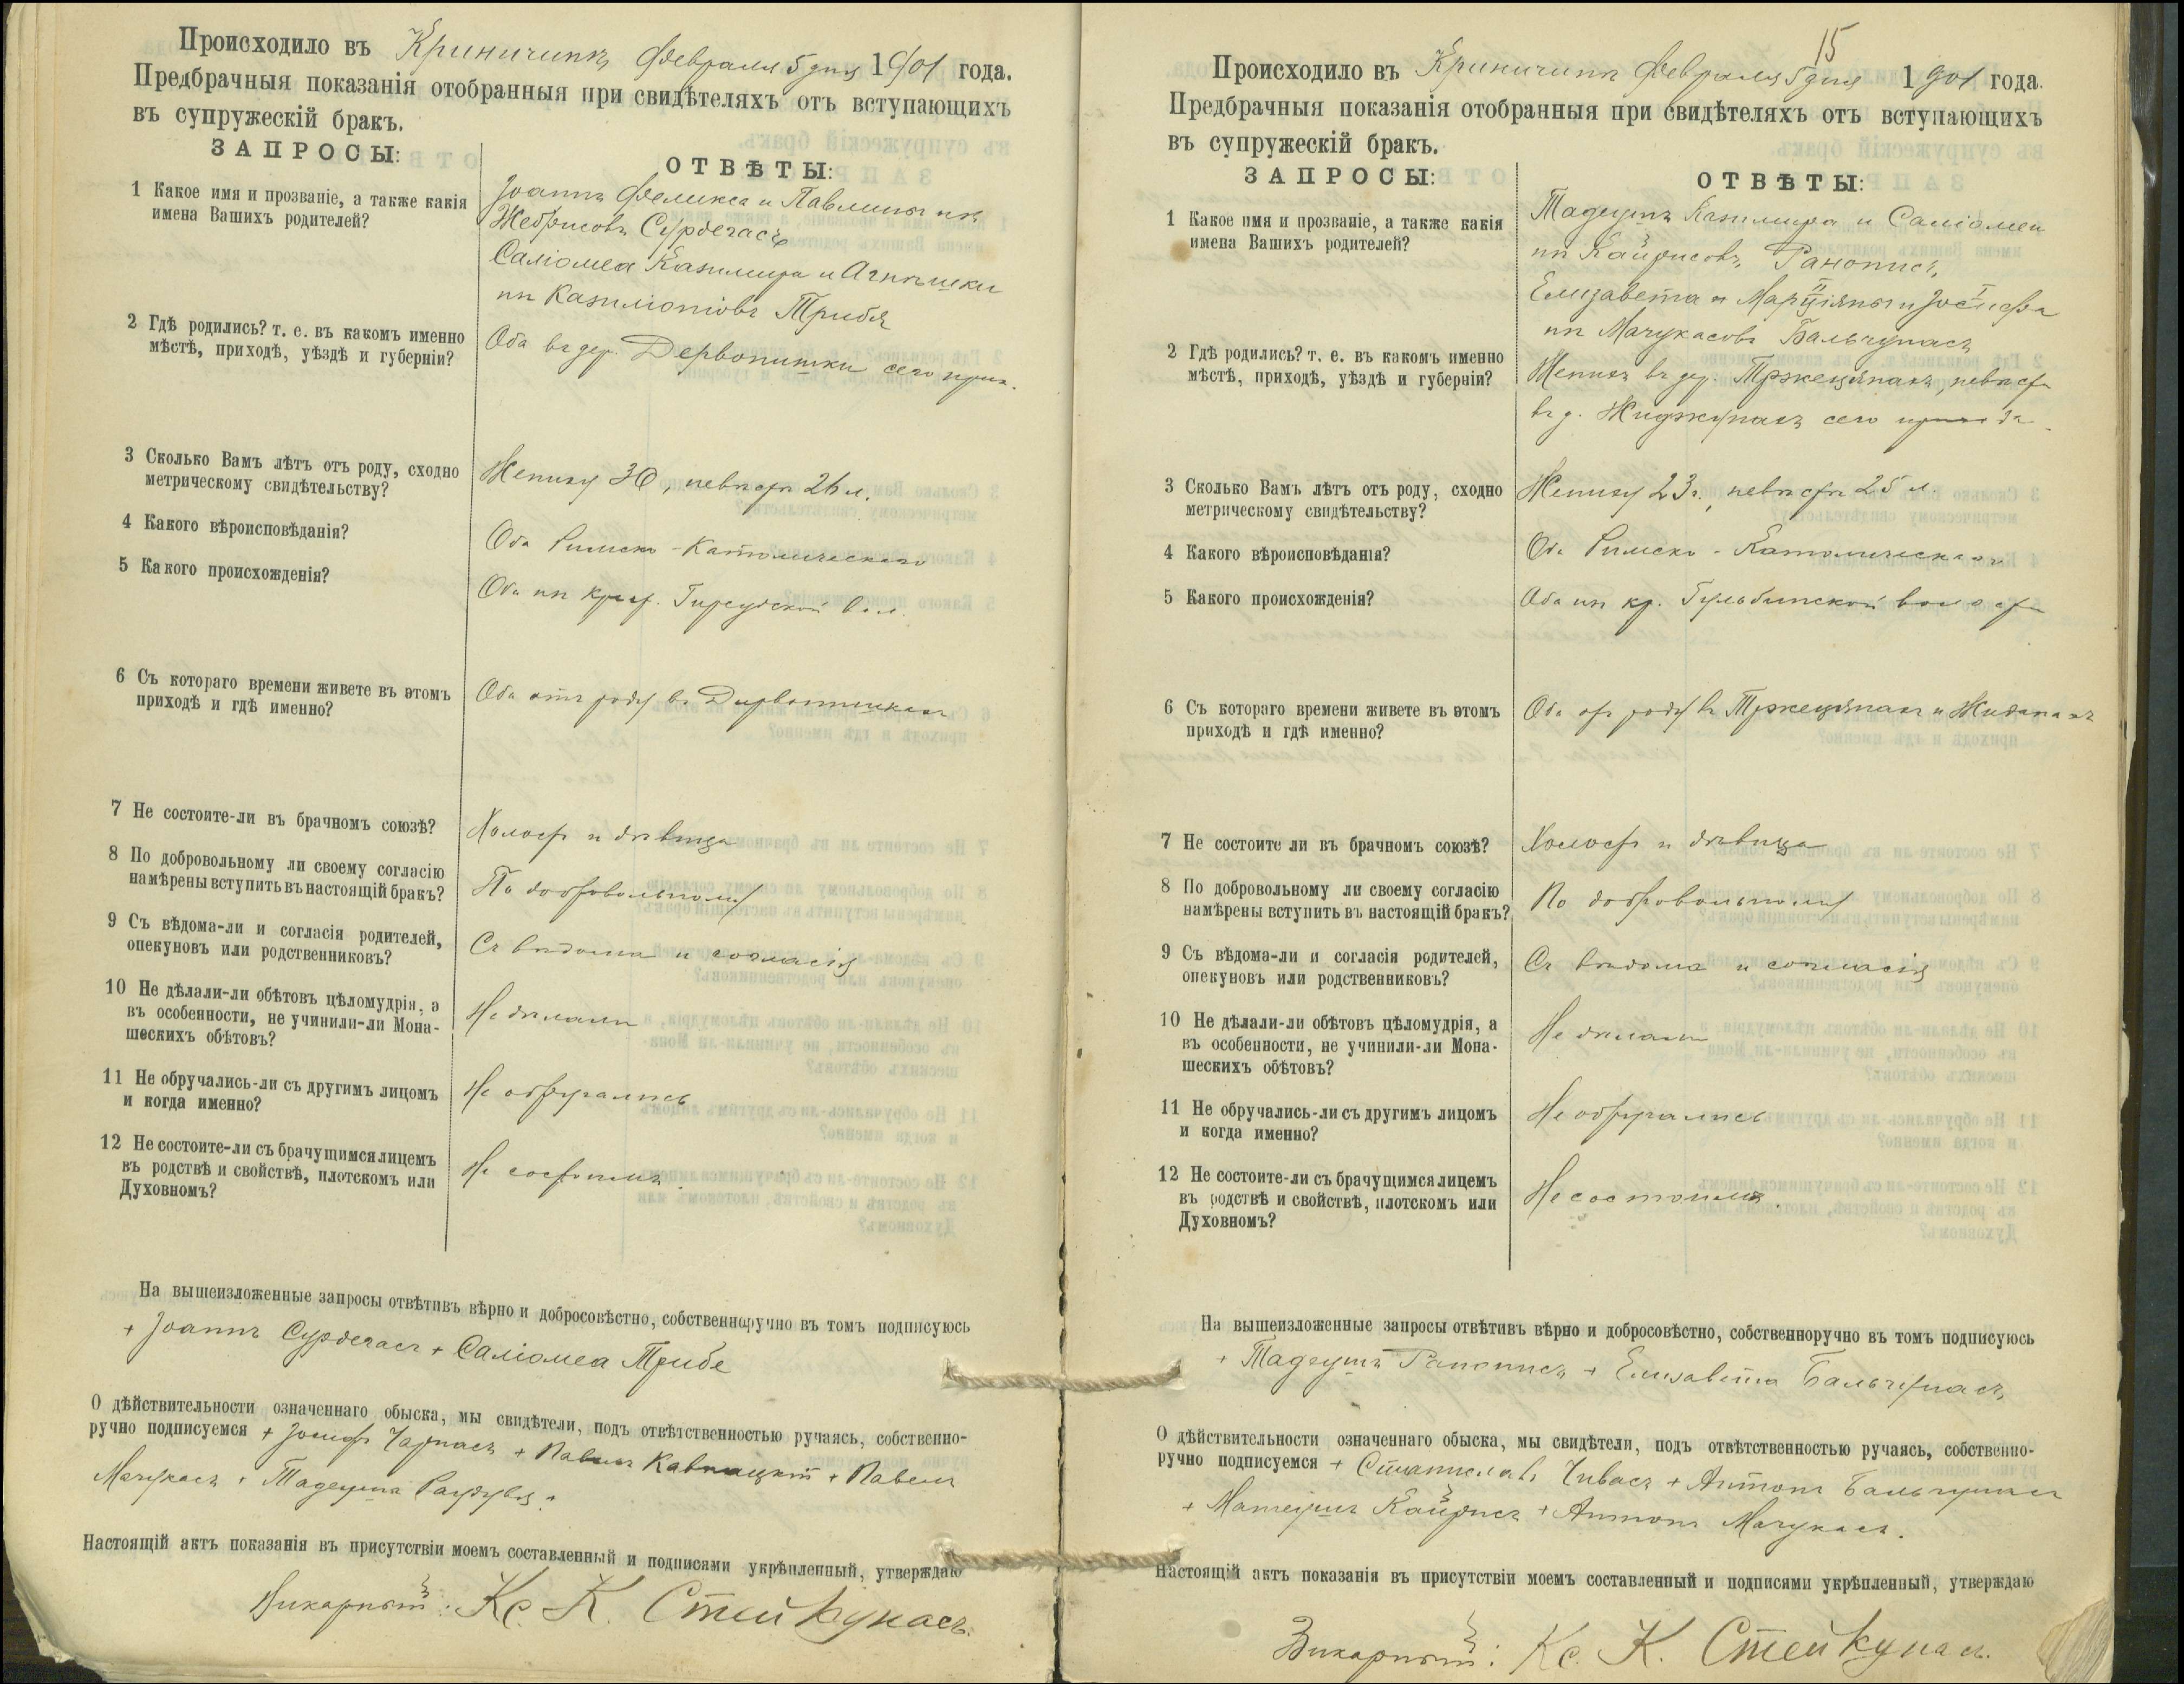 Происходило въ Криничинѣ Февраля 5 дня 1901 года.
Предбрачныя показанія отобранныя при свидѣтеляхъ отъ вступающихъ
въ супружескій бракъ.
ЗАПРОСЫ:
ОТВѢТЫ:
1 Какое имя и прозваніе, а также какія
имена Вашихъ родителей?
Іоаннъ Феликса и Павлины изъ
Жебрисовъ Сурдегасъ
Саліомеа Казимира и Агнѣшки
изъ Трибя
2 Гдѣ родились? т. е. въ какомъ именно
мѣстѣ, приходѣ, уѣздѣ и губерніи?
Оба въ дер. Дервонишки сего прих.
3 Сколько Вамъ лѣтъ отъ роду, сходно
метрическому свидѣтельству?
Жениху 30, невѣстѣ 26 л.
4 Какого вѣроисповѣданія?
Оба Римско-Католическаго
5 Какого происхожденія?
Оба изъ крест. Гирсудской вол.
6 Съ котораго времени живете въ этомъ
приходѣ и гдѣ именно?
Оба отъ роду въ Дирвонишкахъ
7 Не состоите-ли въ брачномъ союзѣ?
Холостъ и дѣвица
8 По добровольному ли своему согласію
намѣрены вступить въ настоящій бракъ?
По добровольному
9 Съ вѣдома-ли и согласія родителей,
опекуновъ или родственниковъ?
Съ вѣдома и согласія
10 Не дѣлали-ли обѣтовъ цѣломудрія, а
въ особенности, не учинили-ли Мона-
шескихъ обѣтовъ?
Не дѣлали
11 Не обручались-ли съ другимъ лицомъ
и когда именно?
Не обручались
12 Не состоите-ли съ брачущимся лицемъ
въ родствѣ и свойствѣ, плотскомъ или
Духовномъ?
Не состоимъ
На вышеизложенные запросы отвѣтивъ вѣрно и добросовѣстно, собственноручно въ томъ подписуюсь
+ Іоаннъ Сурдегасъ + Саліомеа Трибе
О дѣйствительности означеннаго обыска, мы свидѣтели, подъ отвѣтственностью ручаясь, собственно-
ручно подписуемся + Іосифъ + Павелъ + Павелъ
Мачукасъ + Тадеушъ
Настоящій актъ показанія въ присутствіи моемъ составленный и подписями укрѣпленный, утверждаю
Викарный: Кс. К. Стейкунасъ.
15
Происходило въ Криничинѣ Февраля 5 дня 1901 года.
Предбрачныя показанія отобранныя при свидѣтеляхъ отъ вступающихъ
въ супружескій бракъ.
ЗАПРОСЫ:
ОТВѢТЫ:
1 Какое имя и прозваніе, а также какія
имена Вашихъ родителей?
Тадеушъ Казимира и Саліомеи
изъ Кайрисовъ, Ранописъ,
Елизавета Марціяны и Іосифа
изъ Мачукасовъ Бальчунасъ
2 Гдѣ родились? т. е. въ какомъ именно
мѣстѣ, приходѣ, уѣздѣ и губерніи?
Женихъ въ дер. Тржецянахъ, невѣста
въ д. сего прихода
3 Сколько Вамъ лѣтъ отъ роду, сходно
метрическому свидѣтельству?
Жениху 23 г., невѣстѣ 25 л.
4 Какого вѣроисповѣданія?
Оба Римско-Католическаго
5 Какого происхожденія?
Оба изъ кр. Гульбинской волости
6 Съ котораго времени живете въ этомъ
приходѣ и гдѣ именно?
Оба отъ роду въ Тржецянахъ и
7 Не состоите ли въ брачномъ союзѣ?
Холостъ и дѣвица
8 По добровольному ли своему согласію
намѣрены вступить въ настоящій бракъ?
По добровольному
9 Съ вѣдома-ли и согласія родителей,
опекуновъ или родственниковъ?
Съ вѣдома и согласія
10 Не дѣлали-ли обѣтовъ цѣломудрія, а
въ особенности, не учинили-ли Мона-
шескихъ обѣтовъ?
Не дѣлали
11 Не обручались-ли съ другимъ лицомъ
и когда именно?
Не обручались
12 Не состоите-ли съ брачущимся лицемъ
въ родствѣ и свойствѣ, плотскомъ или
Духовномъ?
Не состоимъ.
На вышеизложенные запросы отвѣтивъ вѣрно и добросовѣстно, собственноручно въ томъ подписуюсь
+ Тадеушъ Ранописъ + Елизавета Бальчунасъ
О дѣйствительности означеннаго обыска, мы свидѣтели, подъ отвѣтственностью ручаясь, собственно-
ручно подписуемся + Станиславъ Чивасъ + Антонъ Бальчунасъ
+ Матеушъ Кайрисъ + Антонъ Мачукасъ.
Настоящій актъ показанія въ присутствіи моемъ составленный и подписями укрѣпленный, утверждаю
Викарный: Кс. К. Стейкунасъ.